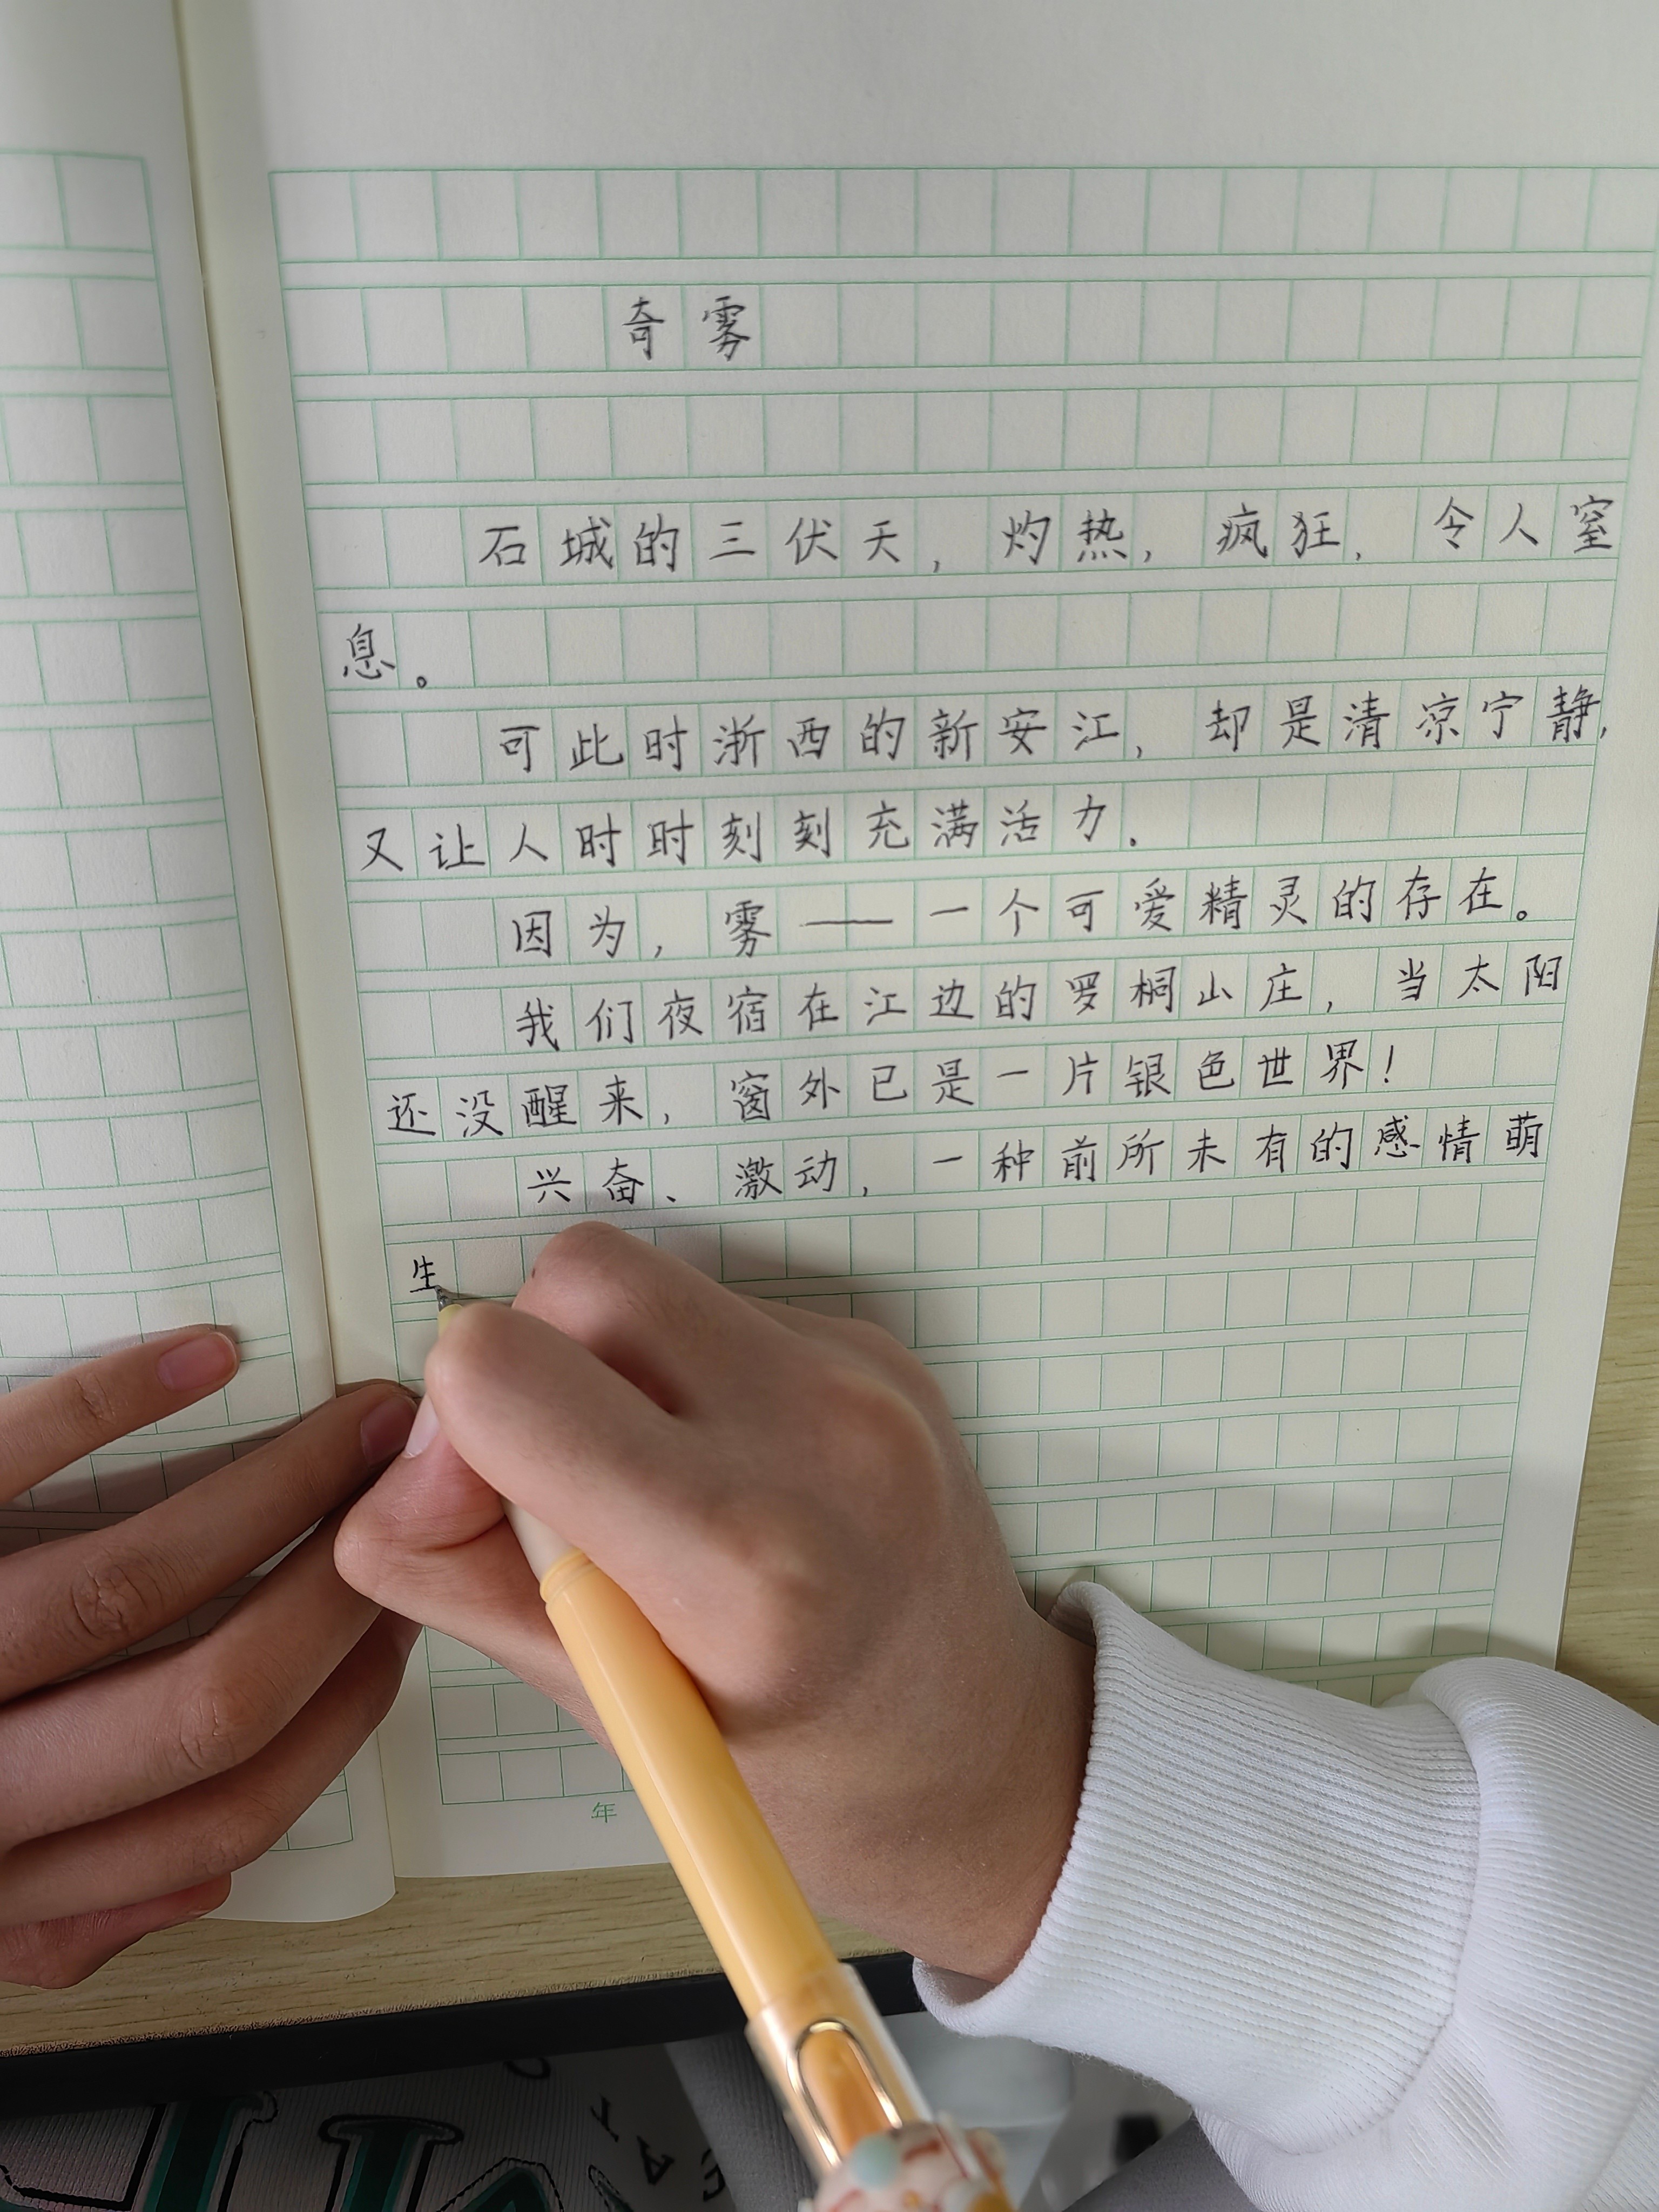 奇雾
石城的三伏天，灼热，疯狂，令人窒
息。
可此时浙西的新安江，却是清凉宁静，
又让人时时刻刻充满活力.
因为，雾——一个可爱精灵的存在。
我们夜宿在江边的罗桐山庄，当太阳
还没醒来，窗外已是一片银色世界！
兴奋、激动，一种前所未有的感情萌
生
年